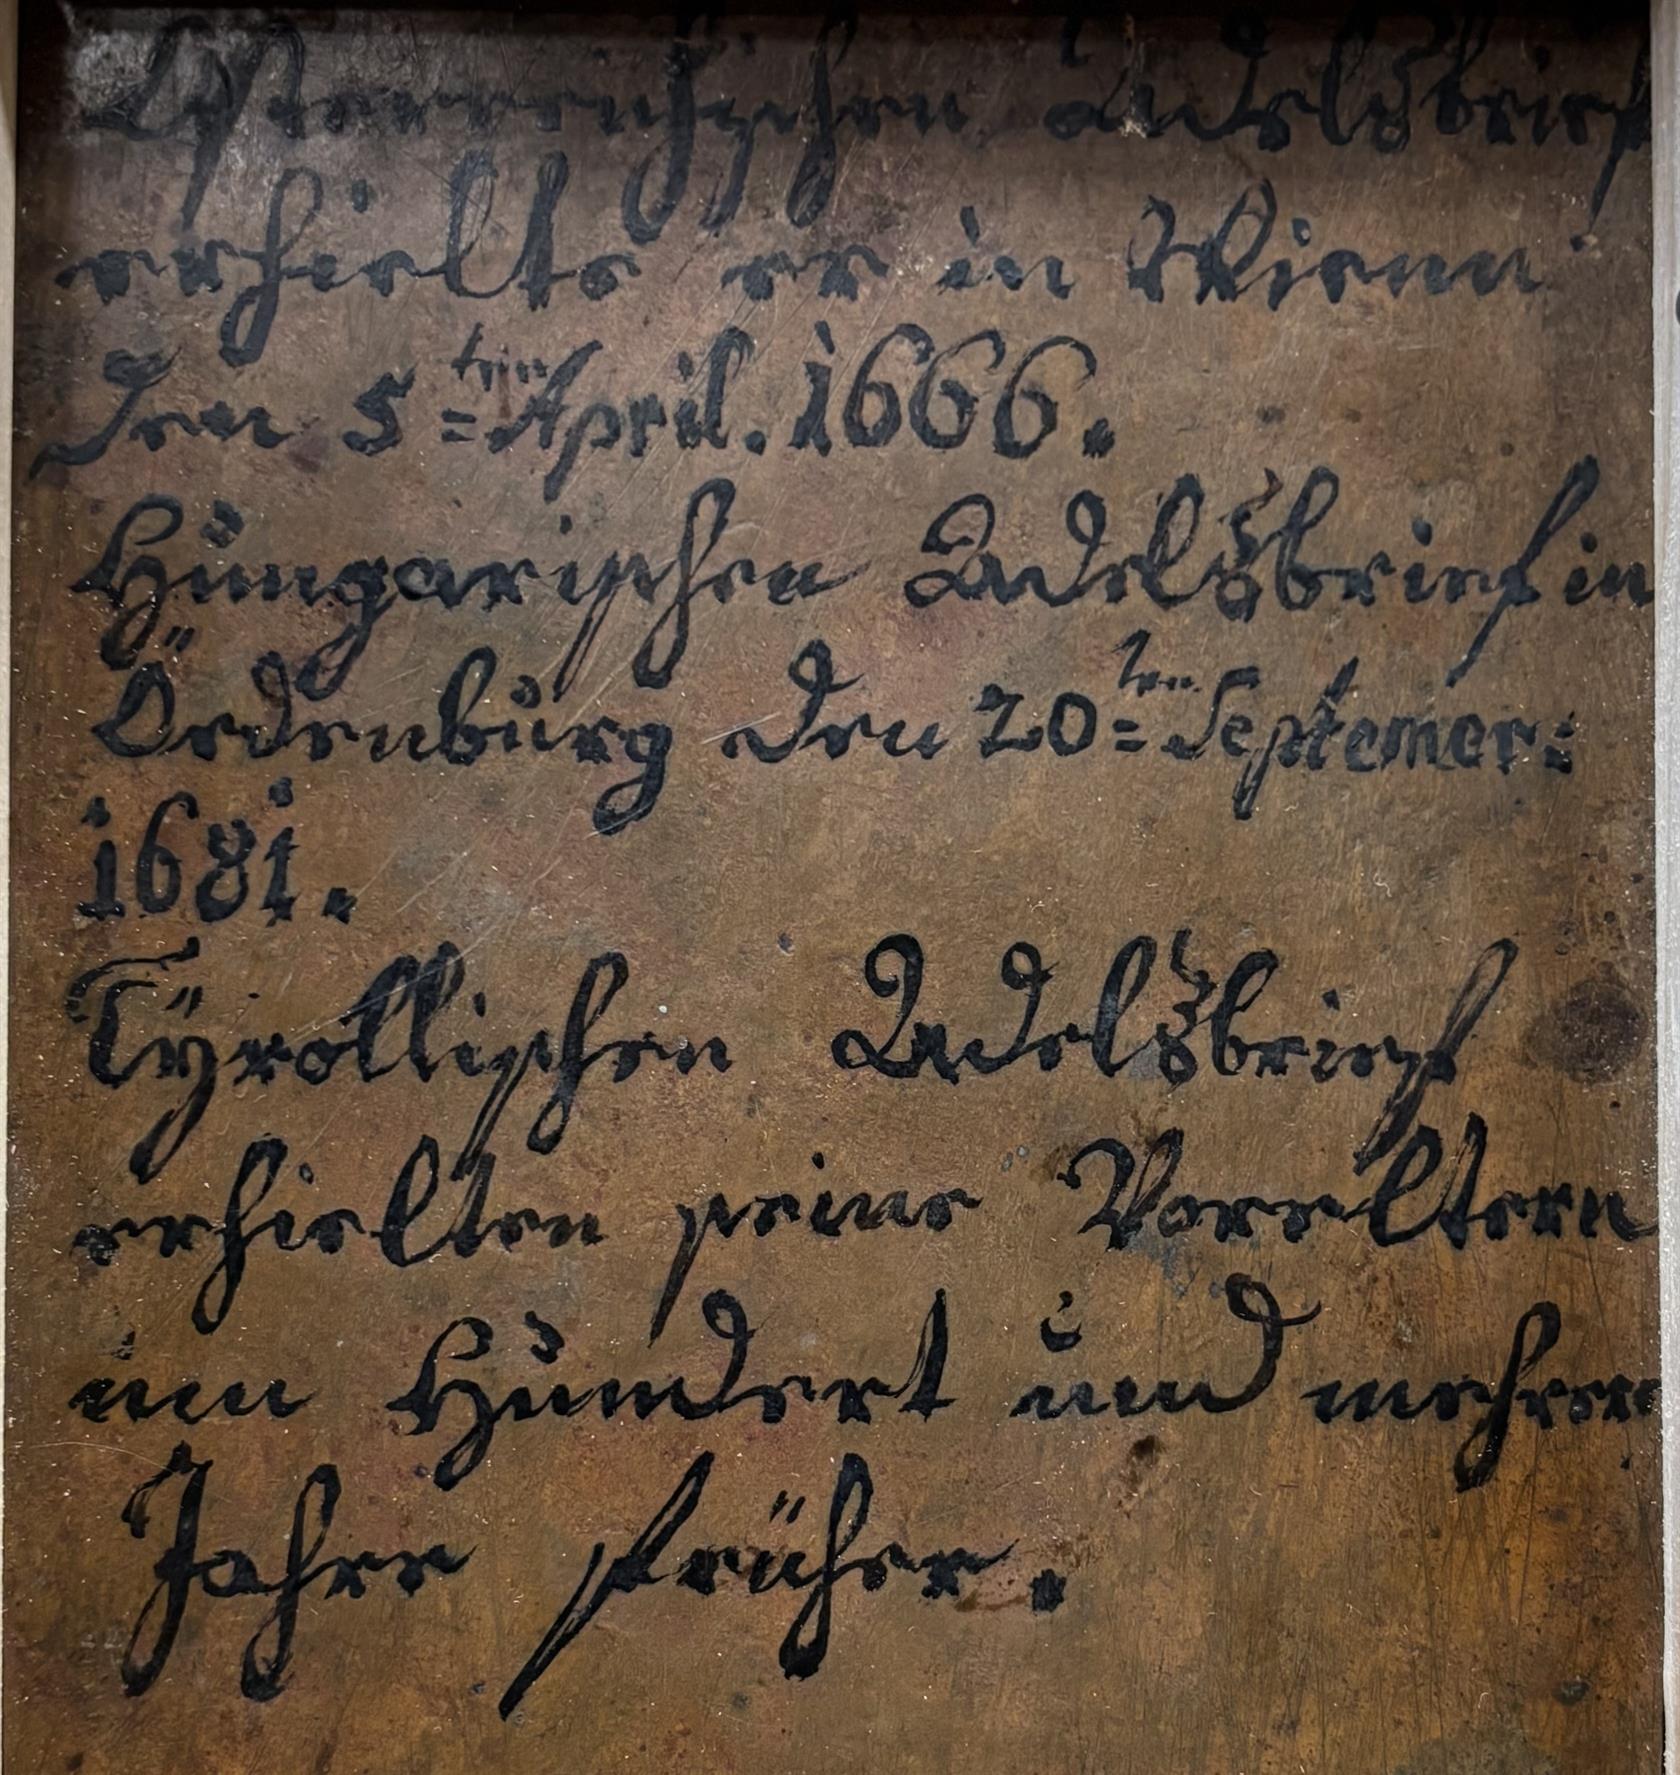 Östereichischen Adelsbrief
erhielte er in Wienn
den 5=ten April. 1666.
Hungarischen Adelsbrief in
Ördenburg den 20=ten Septemer:
1681.
Tÿrollischen Adelsbrief
erhielten seine Vorreltern
um Hundert und mehrere
Jahre früher.